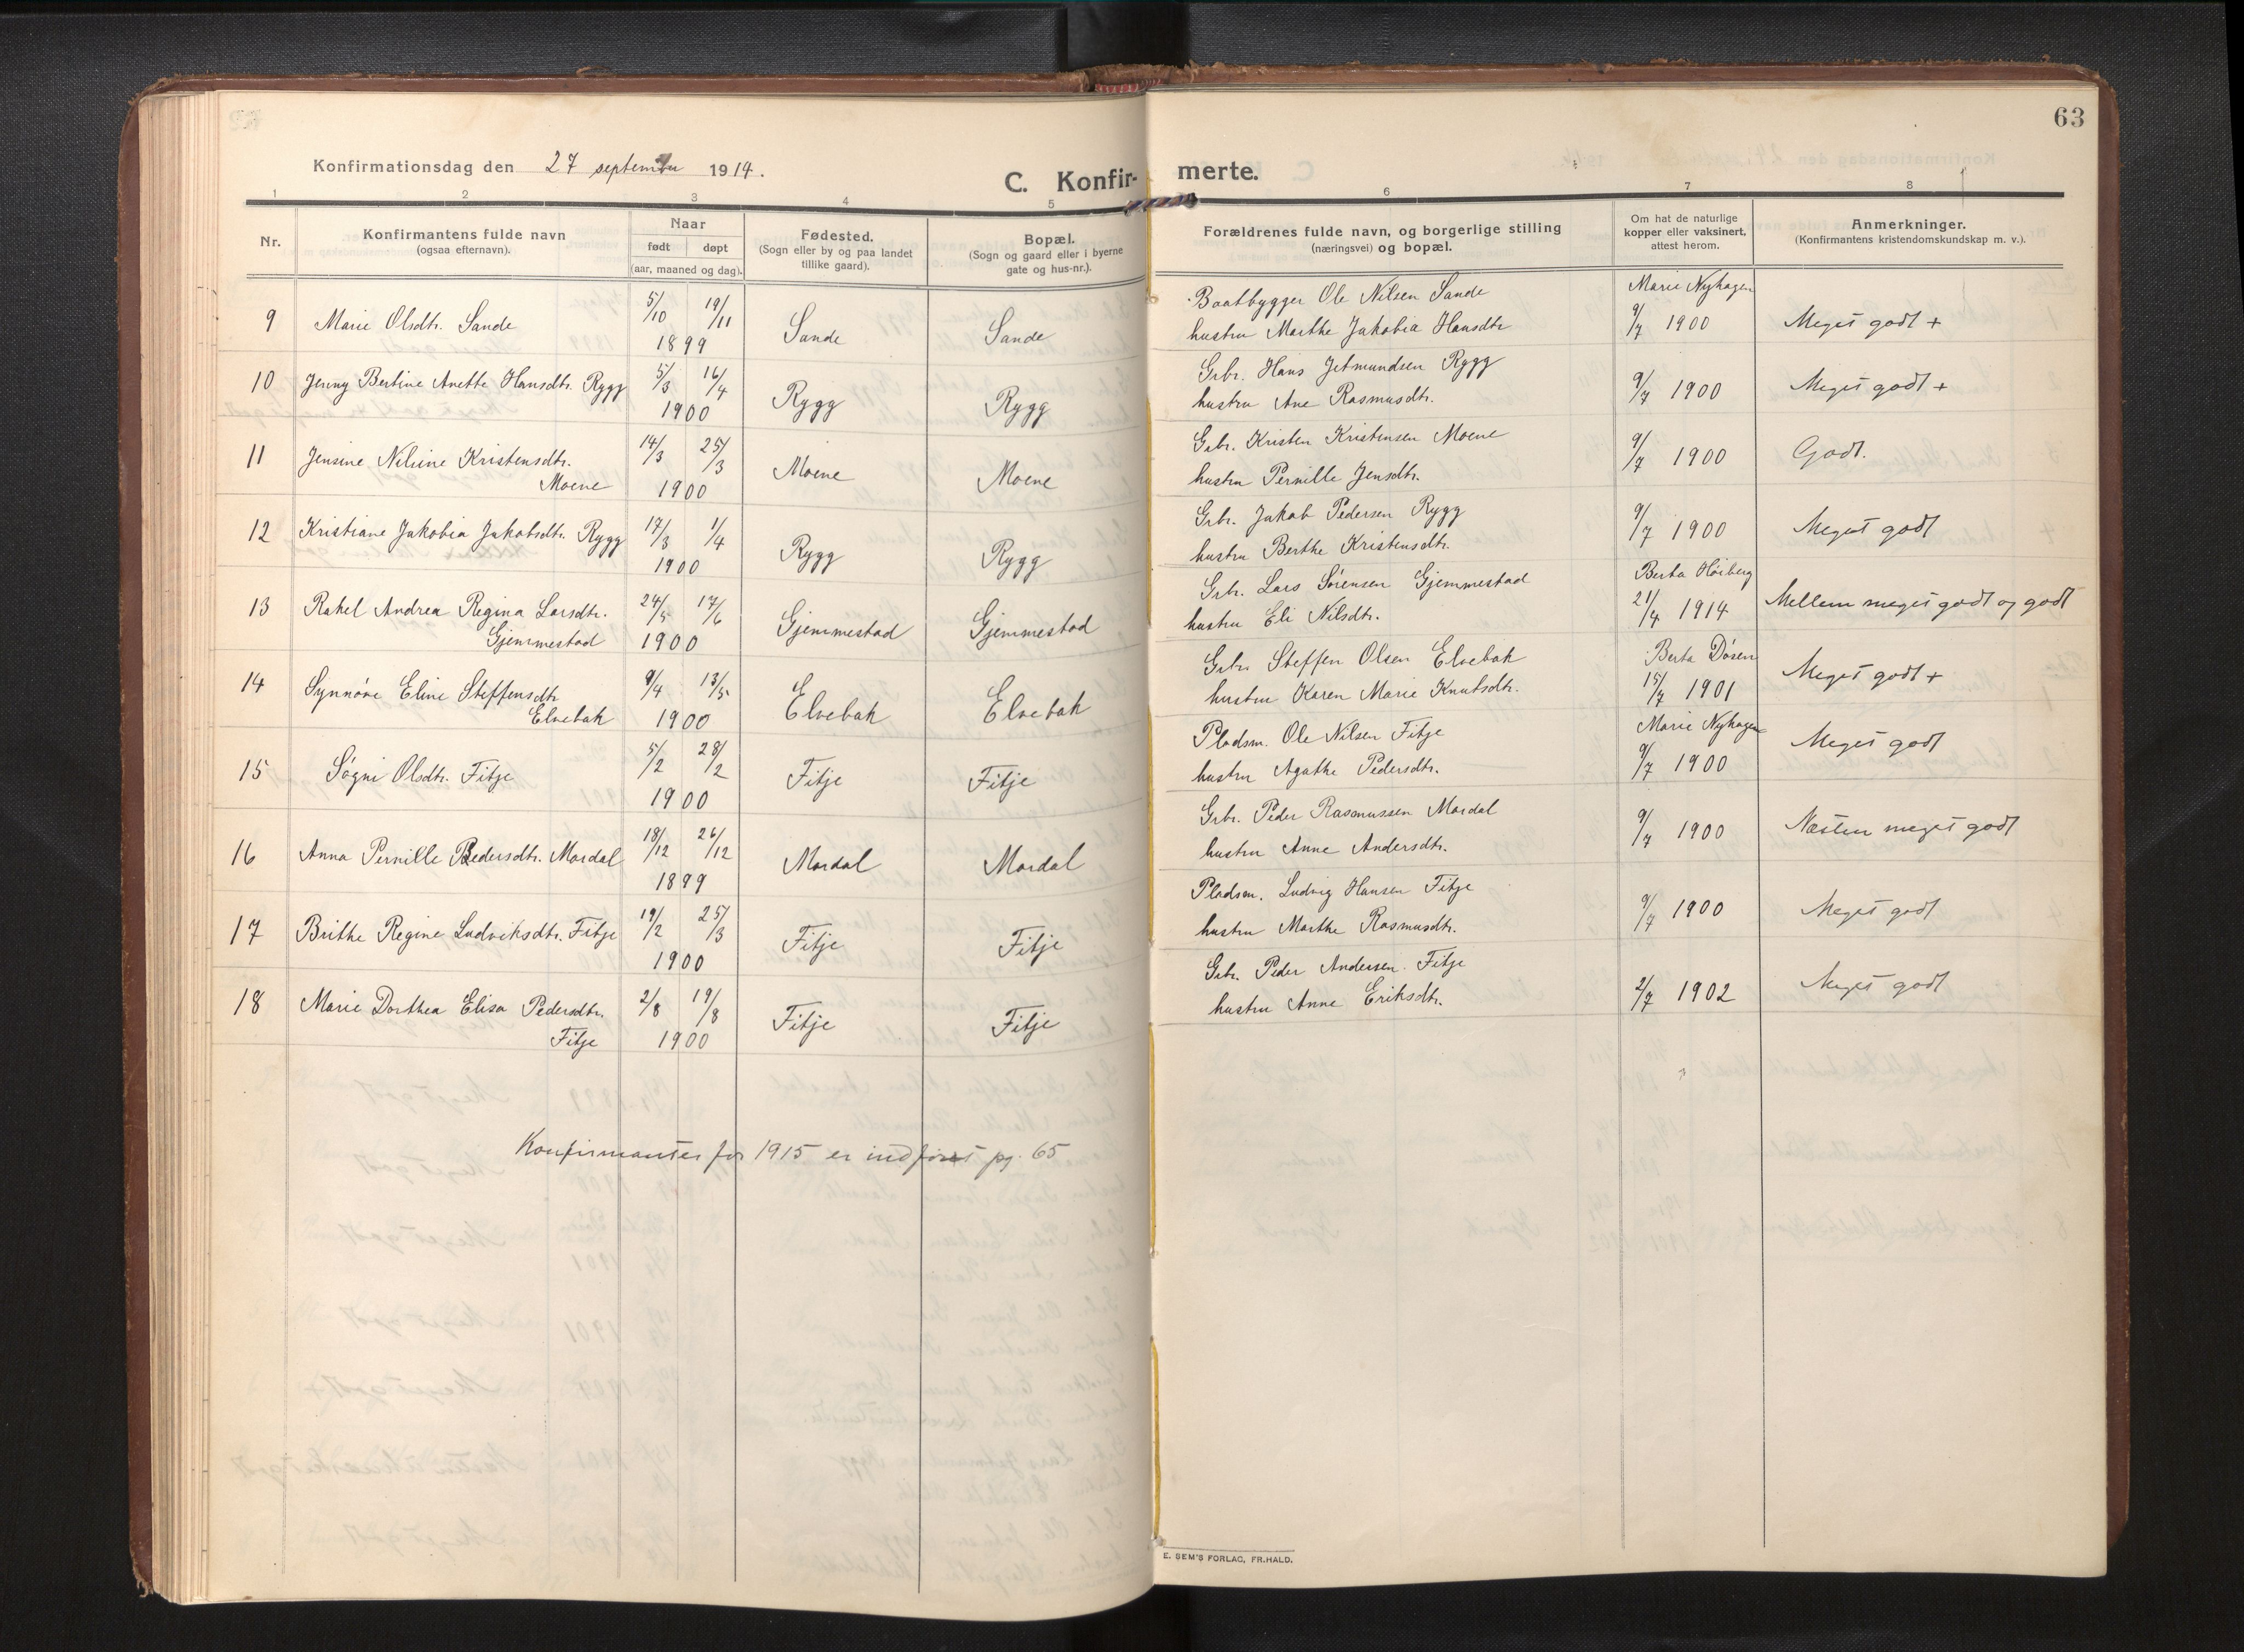 63
Konfirmationsdag den 27 september 1914.
C. Konfir- merte.
1 2 3 4 5 6 7 8
Nr.
Konfirmantens fulde navn
(ogsaa efternavn).
Naar
født døpt
(aar, maaned og dag).
Fødested.
(Sogn eller by og paa landet
tillike gaard).
Bopæl.
(Sogn og gaard eller i byerne
gate og hus-nr.).
Forældrenes fulde navn, og borgerlige stilling
(næringsvei) og bopæl.
Om hat de naturlige
kopper eller vaksinert,
attest herom.
Anmerkninger.
(Konfirmantens kristendomskundskap m. v.).
9 Marie Olsdtr. Sande 5/10 19/11 1899 Sande Sande
Baatbygger Ole Nilsen Sande
hustru Marthe Jakobia Hansdtr
Marie Nyhagen
9/7 1900 Meget godt +
10 Jenny Bertine Anette Hansdtr. Rygg 5/3 16/4 1900 Rygg Rygg
Grbr. Hans Jetmundsen Rygg
hustru Ane Rasmusdtr.
9/7 1900 Meget godt +
11 Jensine Nilsine Kristensdtr.
Moene 14/3 25/3 1900 Moene Moene
Grbr. Kristen Kristensen Moene
hustru Pernille Jensdtr.
9/7 1900 Godt.
12 Kristiane Jakobia Jakobsdtr. Rygg 17/3 1/4 1900 Rygg Rygg
Grbr. Jakob Pedersen Rygg
hustru Berthe Kristensdtr.
9/7 1900 Meget godt
13 Rakel Andrea Regina Larsdtr.
Gjemmestad 24/5 17/6 1900 Gjemmestad Gjemmestad
Grbr. Lars Sørensen Gjemmestad
hustru Eli Nilsdtr.
Berta Höiberg
21/4 1914 Mellem meget godt og godt
14 Synnøve Eline Steffensdtr
Elvebak 9/4 13/5 1900 Elvebak Elvebak
Grbr Steffen Olsen Elvebak
hustru Karen Marie Knutsdtr.
Berta Dösen
15/7 1901 Meget godt +
15 Søgni Olsdtr. Fitje 5/2 28/2 1900 Fitje Fitje
Pladsm. Ole Nilsen Fitje
hustru Agathe Pedersdtr.
Marie Nyhagen
9/7 1900 Meget godt
16 Anna Pernille Pedersdtr. Mardal 18/12 26/12 1899 Mardal Mardal
Grbr. Peder Rasmussen Mardal
hustru Anne Andersdtr.
9/7 1900 Næsten meget godt
17 Brithe Regine Ludviksdtr. Fitje 19/2 25/3 1900 Fitje Fitje
Pladsm. Ludvig Hansen Fitje
hustru Marthe Rasmusdtr.
9/7 1900 Meget godt
18 Marie Dorthea Elisa Pedersdtr.
Fitje 2/8 19/8 1900 Fitje Fitje
Grbr. Peder Andersen Fitje
hustru Anne Eriksdtr.
2/7 1902 Meget godt
Konfirmanter for 1915 er indført pg. 65
E. SEM'S FORLAG, FR.HALD.